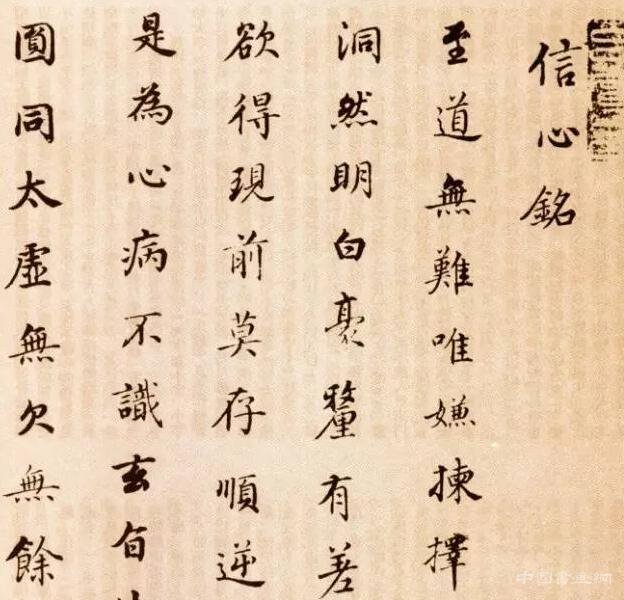 信心銘
至道無難唯嫌揀擇
洞然明白毫釐有差
欲得現前莫存順逆
是為心病不識玄旨
圓同太虛無欠無餘
中国書画網